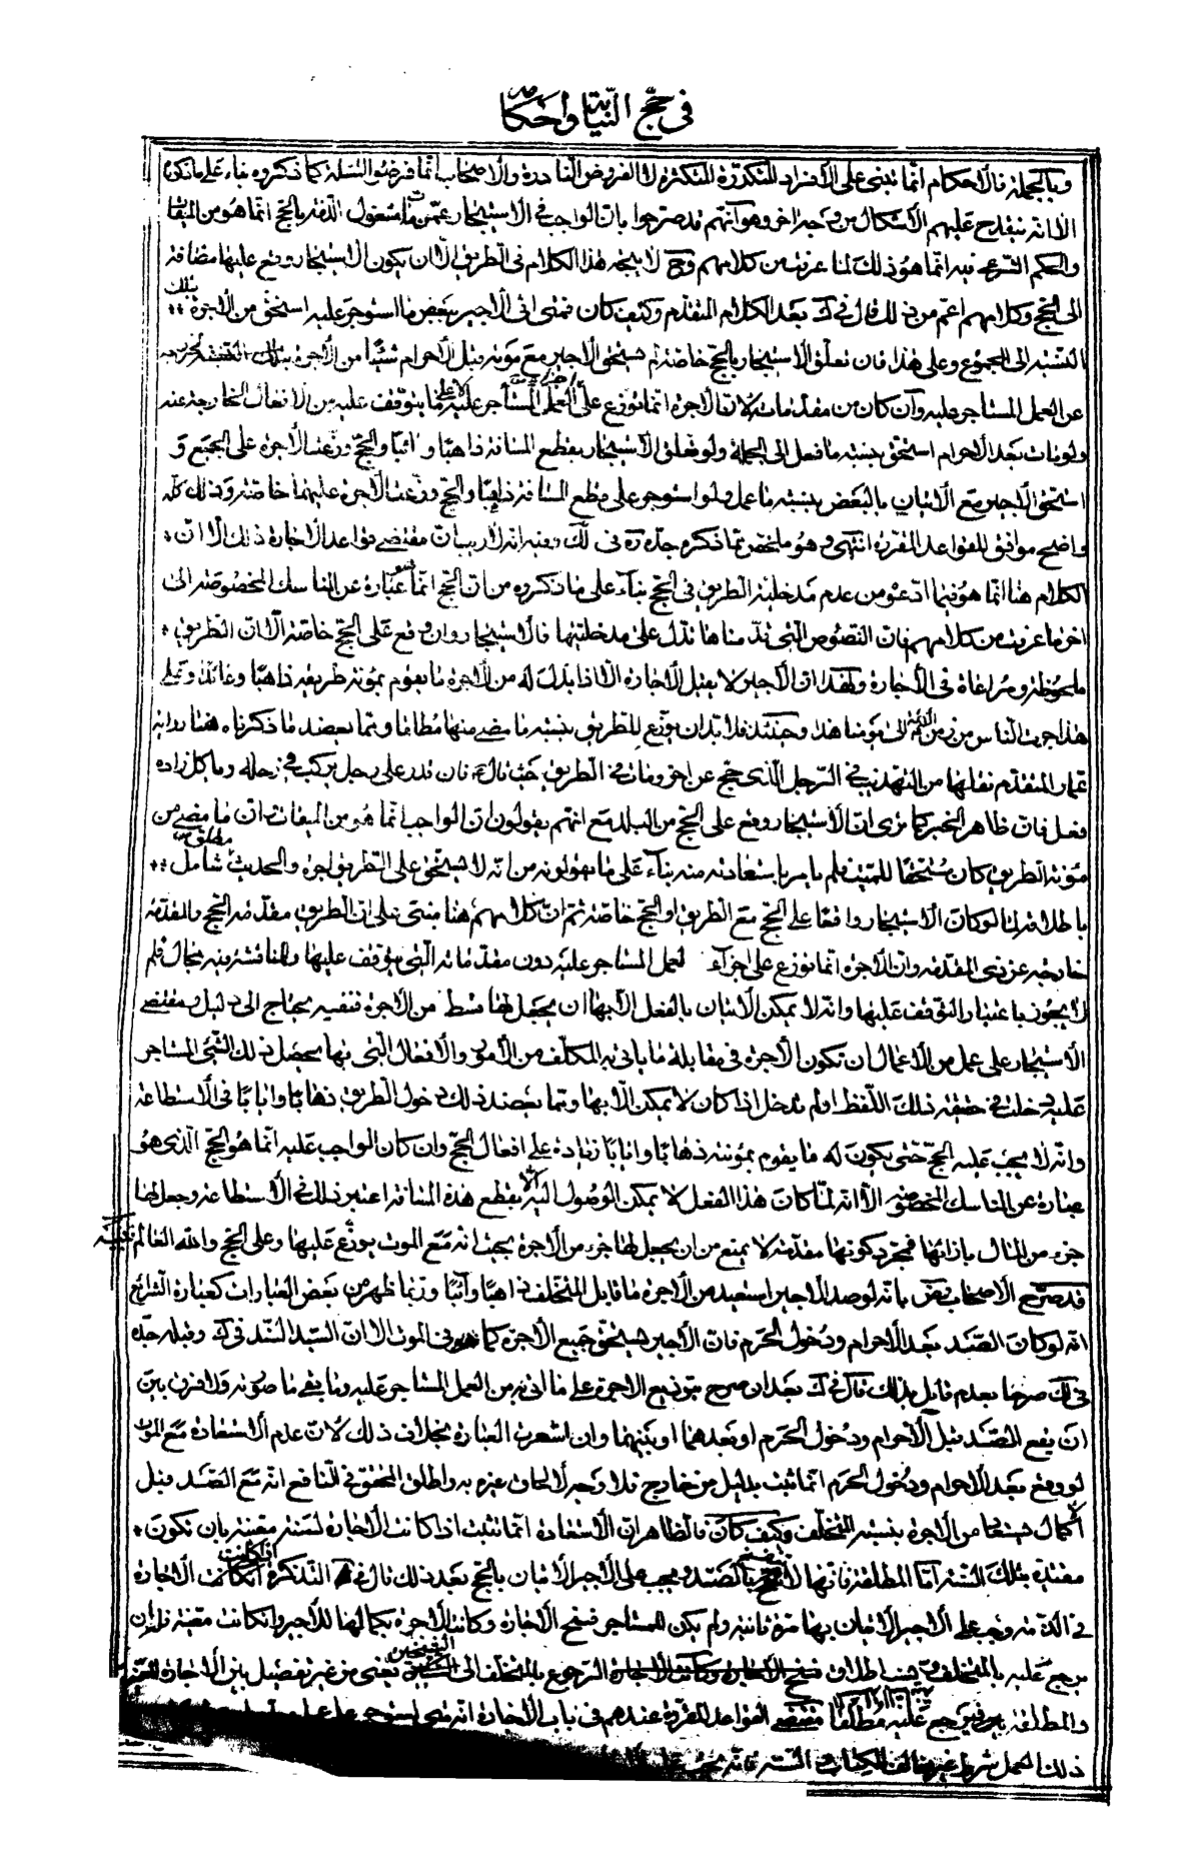 في حج النيابة واحكامه
وبالجملة فالاحكام انما تبنى على الافراد المتكررة المتكثرة لا الفروض النادرة والاصحاب انما فرضوا المسئلة كما ذكروه بناء على ما ذكرنا
الا انه ينقدح عليهم الاشكال من وجه اخر وهو انهم قد صرحوا بان الواجب في الاستيجار عمن مات مشغول الذمة بالحج انما هو من الميقات
والحكم الشرعي فيه انما هو ذلك لما عرفت من كلامهم وح لا يتجه هذا الكلام في الطريق الا ان يكون الاستيجار وقع عليها مضافة
الى الحج وكلامهم اعم من ذلك قال في ك بعد الكلام المتقدم وكيف كان فمتى اتى الاجير ببعض ما استوجر عليه استحق من الاجرة بتلك
النسبة الى المجموع وعلى هذا فان تعلق الاستيجار بالحج خاصة لم يستحق الاجير مع موته قبل الاحرام شيئا من الاجرة
عن العمل المستاجر عليه وان كان من مقدماته لان الاجرة انما توزع على اجزاء العمل المستاجر عليه لا على ما يتوقف عليه من الافعال الخارجة عنه
ولو مات بعد الاحرام استحق بنسبة ما فعل الى الجملة ولو تعلق الاستيجار بقطع المسافة ذاهبا وائبا والحج وزعت الاجرة على الجميع و
استحق الاجير مع الاتيان بالبعض بنسبة ما عمل ولو استوجر على قطع المسافة ذاهبا والحج وزعت الاجرة عليهما خاصة وذلك كله
واضح موافق للقواعد المقررة انتهى وهو ملخص مما ذكره جده ره في لك وفيه انه لا ريب ان مقتضى قواعد الاجارة ذلك الا ان
الكلام هنا انما هو فيما ادعوه من عدم مدخلية الطريق في الحج بناء على ما ذكروه من ان الحج انما هو عبارة عن المناسك المخصوصة الى
اخر ما عرفت من كلامهم فان النصوص التي قدمناها تدل على مدخليتها فالاستيجار وان وقع على الحج خاصة الا ان الطريق
ملحوظة ومراعاة في الاجارة ولهذا ان الاجير لا يقبل الاجارة الا اذا بذلت له من الاجرة ما يقوم بمؤنة طريقه ذاهبا وعائدا وعلى
هذا جرت الناس من زمن الائمة الى يومنا هذا وحينئذ فلابد ان يوزع للطريق بنسبة ما مضى منها مطلقا ومما يعضد ما ذكرناه هنا رواية
عمار المتقدم نقلها من التهذيب في الرجل الذي حج عن اخر ومات في الطريق حيث قال فان قدر على رجل يركب في رحله وياكل زاده
فعل فان ظاهر الخبر كما ترى ان الاستيجار وقع على الحج من البلد مع انهم يقولون ان الواجب انما هو من الميقات ان ما مضى من
مؤنة الطريق كان مستحقا للميت فلم يامر باستعادته منه بناء على ما يقولونه من انه لا يستحق على الطريق اجرة والحديث مطلق شامل
باطلاقه لما لو كان الاستيجار واقعا على الحج مع الطريق او الحج خاصة ثم ان كلامهم هنا مبني على ان الطريق مقدمة الحج والمقدمة
خارجة عن ذي المقدمة وان الاجرة انما توزع على اجزاء العمل المستاجر عليه دون مقدماته التي يتوقف عليها وللمناقشة فيه مجال فلم
لا يجوز باعتبار التوقف عليها وانه لا يمكن الاتيان بالفعل الا بها ان يجعل لها قسط من الاجرة فنفيه يحتاج الى دليل ومقتضى
الاستيجار على عمل من الاعمال ان تكون الاجرة في مقابلة ما ياتي به المكلف من الامور والافعال التي بها يحصل ذلك الشيء المستاجر
عليه دخلت في حقيقة ذلك اللفظ او لم تدخل اذا كان لا يمكن الا بها ومما يعضد ذلك دخول الطريق ذهابا وايابا في الاستطاعة
وانه لا يجب عليه الحج حتى يكون له ما يقوم بمؤنته ذهابا وايابا زيادة على افعال الحج وان كان الواجب عليه انما هو الحج الذي هو
عبارة عن المناسك المخصوصة الا انه لما كان هذا الفعل لا يمكن الوصول اليه الا بقطع هذه المسافة اعتبر ذلك في الاستطاعة وجعل لها
جزء من المال بازائها فمجرد كونها مقدمة لا يمنع من ان يجعل لها جزء من الاجرة بحيث انه مع الموت يوزع عليها وعلى الحج والله العالم تنبيه
قد صرح الاصحاب رض بانه لو صد الاجير استعيد من الاجرة ما قابل المتخلف ذاهبا وآئبا وربما ظهر من بعض العبارات كعبارة الشرائع
انه لو كان الصد بعد الاحرام ودخول الحرم فان الاجير يستحق جميع الاجرة كما هو في الموت الا ان السيد السند في ك وقبله جده
في لك صرحا بعدم قايل بذلك قال في ك بعد ان صرح بتوزيع الاجرة على ما اتى به من العمل المستاجر عليه وما بقي ما صورته ولا فرق بين
ان يقع الصد قبل الاحرام ودخول الحرم او بعدهما او بينهما وان اشعرت العبارة بخلاف ذلك لان عدم الاستعادة مع الموت
لو وقع بعد الاحرام ودخول الحرم انما ثبت بدليل من خارج فلا وجه لالحاق غيره به واطلق المحقق في النافع انه مع الصد قبل
الاكمال يستعاد من الاجرة بنسبة المتخلف وكيف كان فالظاهر ان الاستعادة انما تثبت اذا كانت الاجارة لسنة معينة بان تكون
مقيدة بتلك السنة اما المطلقة فانها لا تنفسخ بالصد ويجب على الاجير الاتيان بالحج بعد ذلك قال في التذكرة اذا كانت الاجارة
في الذمة وجب على الاجير الاتيان بها مرة ثانية ولم يكن للمستاجر فسخ الاجارة وكانت الاجرة بكمالها للاجير وان كانت معينة فله ان
يرجع عليه بالمتخلف ونسب اطلاق الرجوع بالمتخلف الى الشيخين يعني من غير تفصيل بين الاجارة المعينة
والمطلقة عليه مطلقا مقتضى القواعد المقررة عندهم في باب الاجارة انه متى استوجر على عمل
ذلك العمل شرط غير مخالف للكتاب والسنة فانه يجب